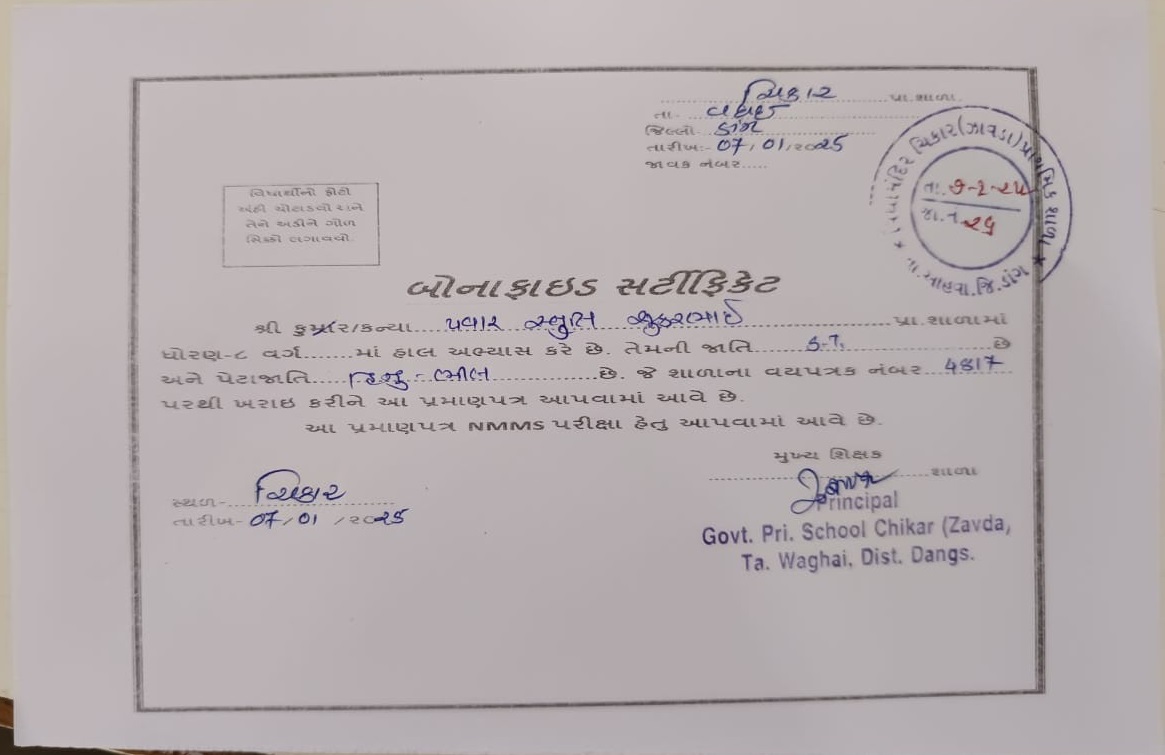 ચિકાર પ્રા.શાળા
તા- વઘઈ
જિલ્લો- ડાંગ
તારીખ:- 07/01/2025
જાવક નંબર.....
વિદ્યાર્થીનો ફોટો
અહીં ચોટાડવો અને
તેને અડીને ગોળ
સિક્કો લગાવવો
પ્રાથમિક શાળા ચિકાર(ઝાવડા)
તા. ૭-૧-૨૫
જા.નં. ૨૬
તા.આહવા.જિ.ડાંગ
બોનાફાઇડ સર્ટીફિકેટ
શ્રી કુમાર/કન્યા પવાર સ્તુતિ પ્રા.શાળામાં
ધોરણ-૮ વર્ગ......માં હાલ અભ્યાસ કરે છે. તેમની જાતિ છે
અને પેટાજાતિ હિન્દુ - ભીલ છે. જે શાળાના વયપત્રક નંબર
પરથી ખરાઇ કરીને આ પ્રમાણપત્ર આપવામાં આવે છે.
આ પ્રમાણપત્ર NMMS પરીક્ષા હેતુ આપવામાં આવે છે.
મુખ્ય શિક્ષક
શાળા
સ્થળ- ચિકાર
તારીખ- 07/01/2025
Principal
Govt. Pri. School Chikar (Zavda,
Ta. Waghai, Dist. Dangs.